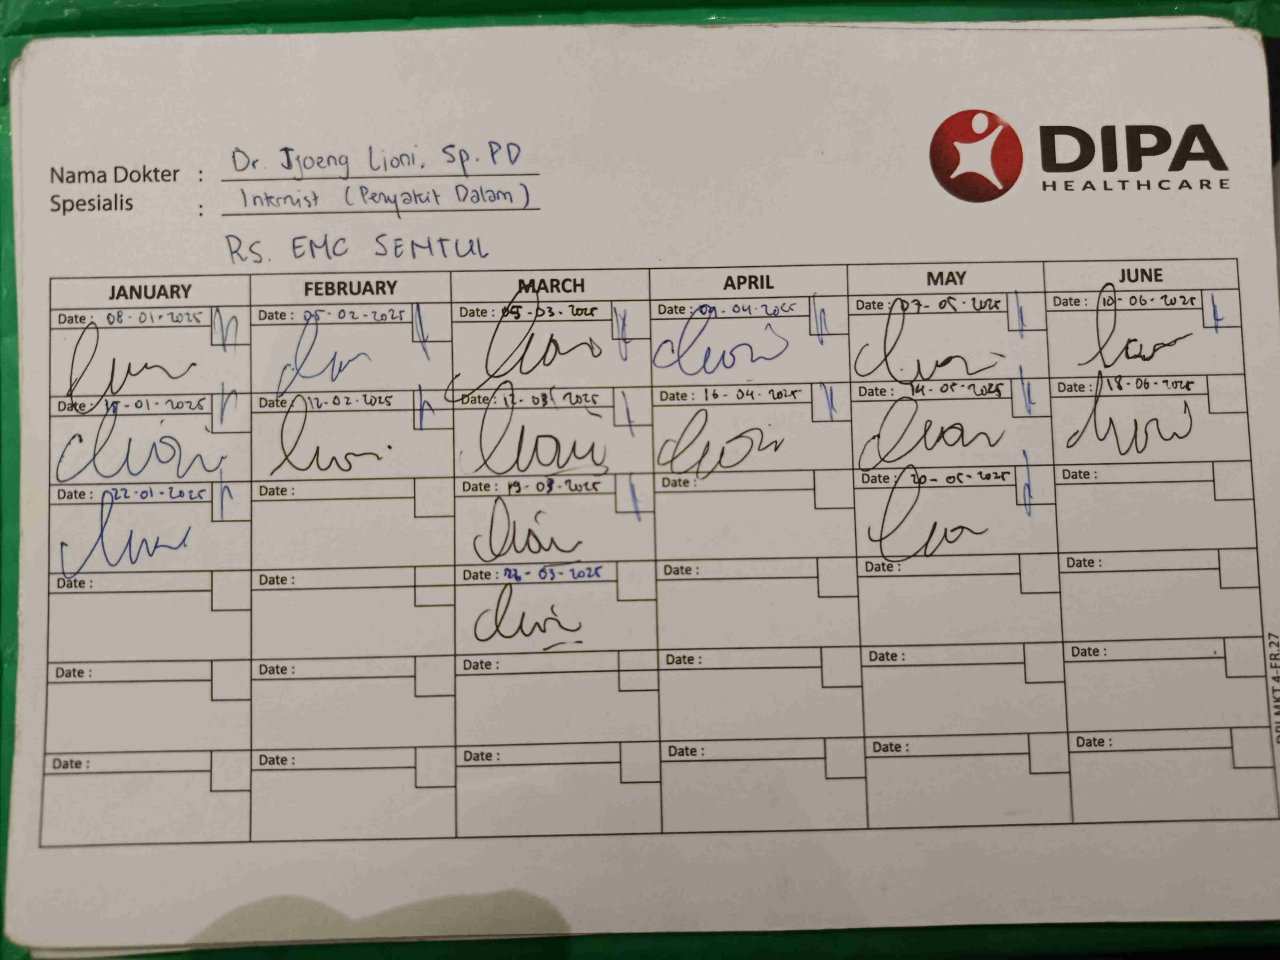 DIPA
HEALTHCARE
Nama Dokter : Dr. Tjoeng Lioni, Sp.PD
Spesialis : Internist (Penyakit Dalam)
RS. EMC SENTUL
JANUARY FEBRUARY MARCH APRIL MAY JUNE
Date : 08-01-2025 Date : 05-02-2025 Date : 05-03-2025 Date : 09-04-2025 Date : 07-05-2025 Date : 10-06-2025
Date : 15-01-2025 Date : 12-02-2025 Date : 12-03-2025 Date : 16-04-2025 Date : 14-05-2025 Date : 18-06-2025
Date : 22-01-2025 Date : Date : 19-03-2025 Date : Date : 20-05-2025 Date :
Date : Date : Date : -03-2025 Date : Date : Date :
Date : Date : Date : Date : Date : Date :
Date : Date : Date : Date : Date : Date :